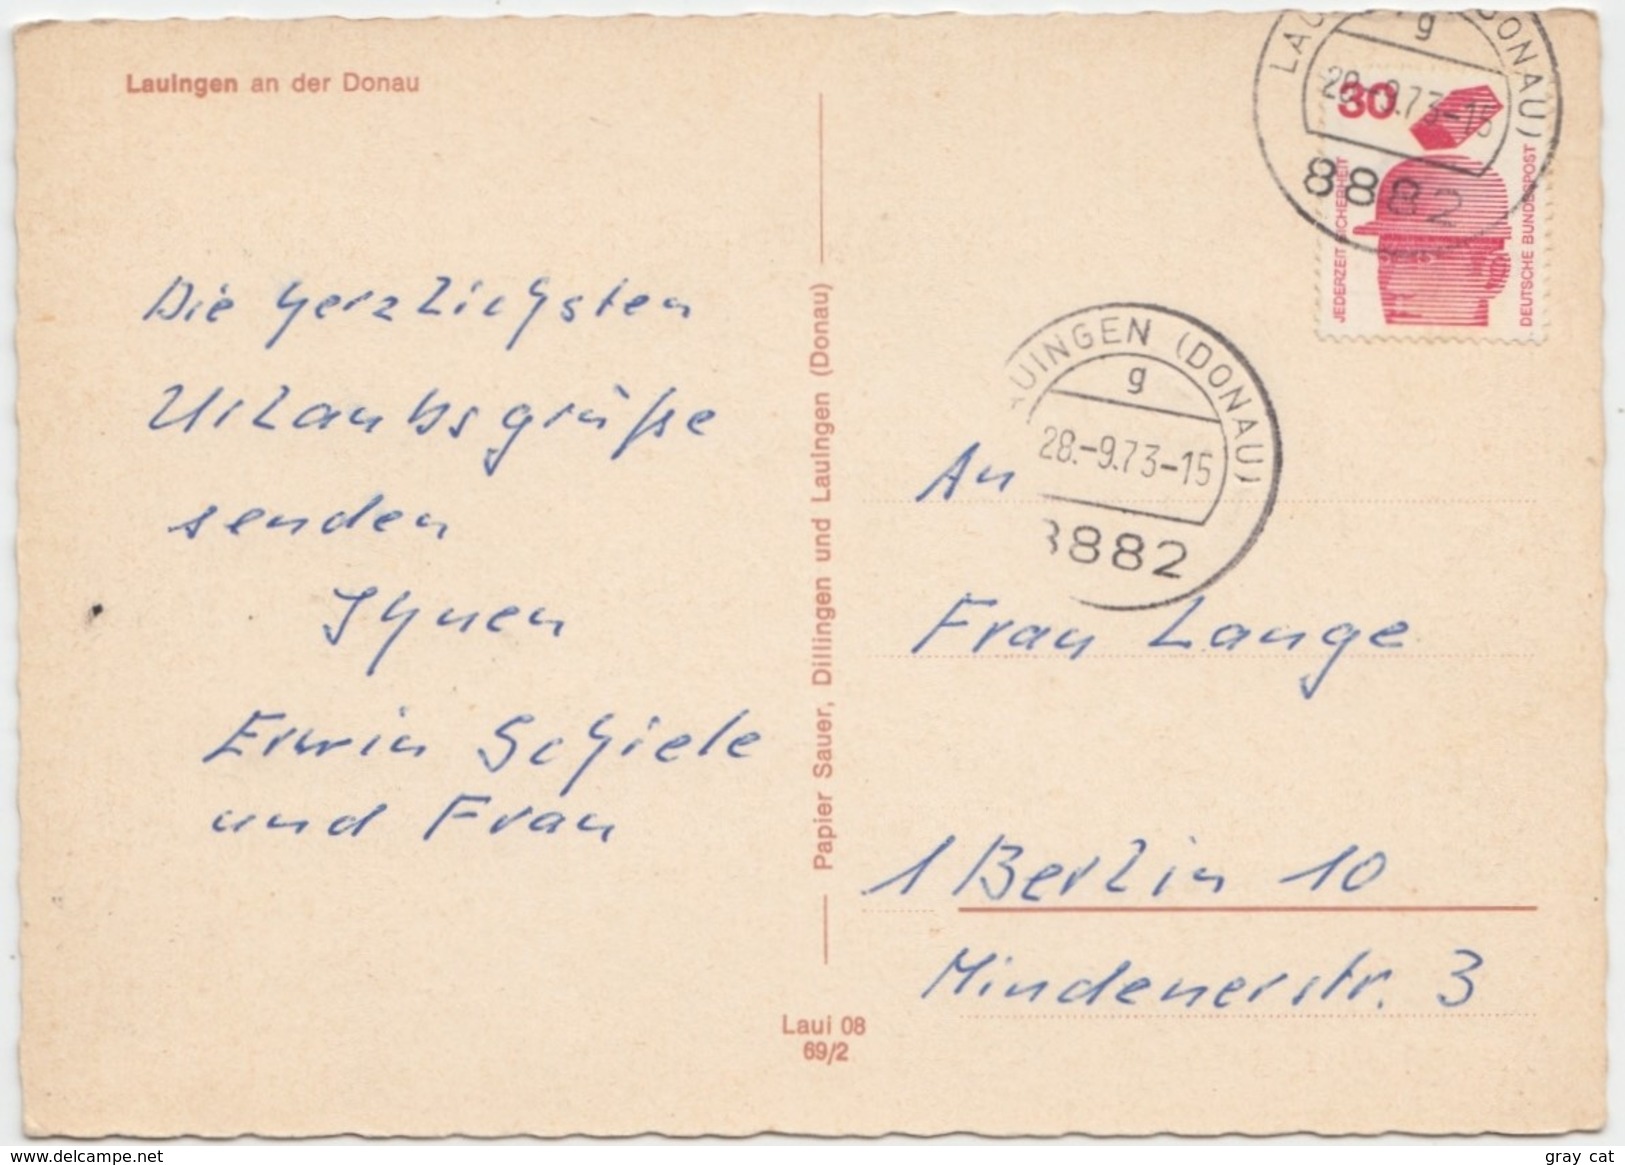 Lauingen an der Donau
Die herzlichsten
Urlaubsgrüße
senden
Ihnen
Erwin Schiele
und Frau
Papier Sauer, Dillingen und Lauingen (Donau)
Laui 08
69/2
(DONAU)
g
28.-9.73-15
8882
30
JEDERZEIT SICHERHEIT
DEUTSCHE BUNDESPOST
AUINGEN (DONAU)
g
28.-9.73-15
8882
An
Frau Lange
1 Berlin 10
Mindenerstr. 3
www.delcampe.net
gray cat